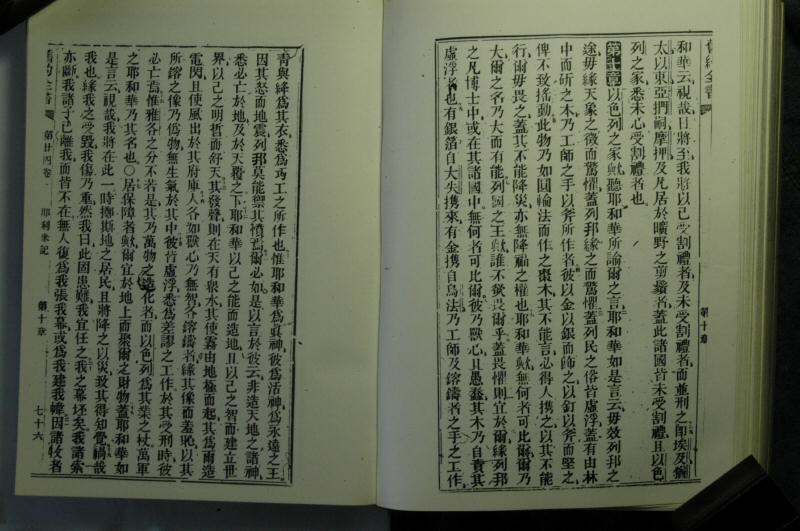 舊約全書
第十章
和華云視哉日將至我將以已受割禮者及未受割禮者而重刑之卽埃及猶
太以東亞捫嗣摩押及凡居於曠野之剪鬚者蓋此諸國皆未受割禮且以色
列之家悉未心受割禮者也
第十章以色列之家歟聽耶和華所諭爾之言耶和華如是言云毋效列邦之
途毋緣天象之徵而驚懼蓋列邦緣之而驚懼蓋列民之俗皆虛浮蓋有由林
中而斫之木乃工師之手以斧所作者彼以金以銀而飾之以釘以斧而堅之
俾不致搖動此物乃如圓輪法而作之棗木其不能言必得人携之以其不能
行爾毋畏之蓋其不能降災亦無降福之權也耶和華歟無何者可比爾爾乃
大爾之名乃大而有能列國之王歟誰不欲畏爾乎蓋畏懼則宜於爾緣列邦
之凡博士中或在其諸國中無何者可比爾彼乃獸心且愚蠢其木乃自責其
虛浮者也有銀箔自大失携來有金携自烏法乃工師及鎔鑄者之手之工作
青與絳爲其衣悉爲巧工之所作也惟耶和華爲眞神彼爲活神爲永遠之王
因其怒而地震列邦莫能禦其憤焉爾必如是以言於彼云非造天地之諸神
悉必亡於地及於天覆之下耶和華以己之能而造地且以己之智而建立世
界以己之明哲而舒天其發聲則在天有衆水其使霧由地極而起其爲雨造
電閃且使風出於其府庫人各如獸心乃無智各鎔鑄者緣其像而羞恥以其
所鎔之像乃僞物無生氣於其中彼皆虛浮悉爲差謬之工作於其受刑時彼
必亡焉惟雅各之分不若是其乃萬物之造化者而以色列爲其業之杖萬軍
之耶和華乃其名也○居保障者歟爾宜於地上而聚爾之財物蓋耶和華如
是言云視哉我將在此一時擲斯地之居民且將降之以災致其得知覺禍哉
我也緣我之受毁我傷乃重然我曰此固患難我宜任之我之幕坯矣我諸索
亦斷我諸子已離我而皆不在無人復爲我張我幕或爲我建我幃因諸牧者
舊約全書 第廿四卷 耶利米記 第十章 七十六